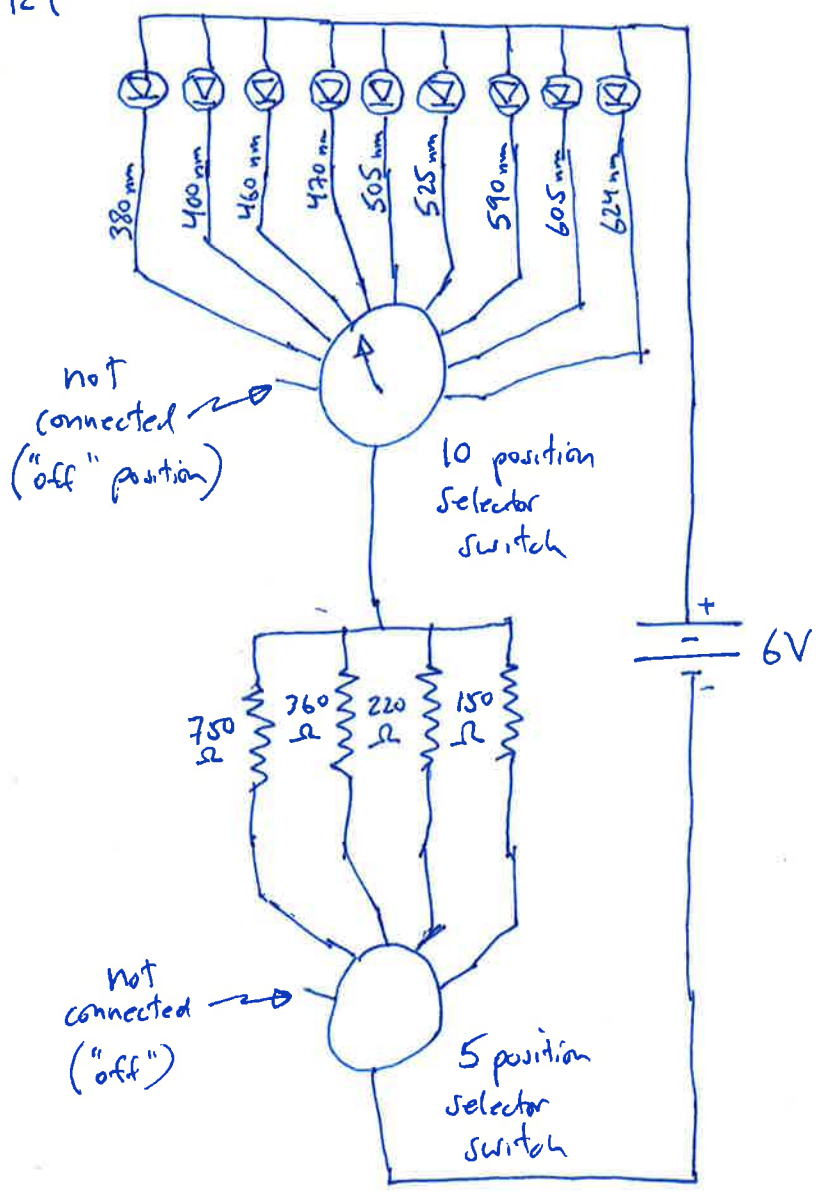 380 nm
400 nm
460 nm
470 nm
505 nm
525 nm
590 nm
605 nm
624 nm
not
connected
("off" position)
10 position
selector
switch
+
-
6V
-
750
Ω
360
Ω
220
Ω
150
Ω
not
connected
("off")
5 position
selector
switch